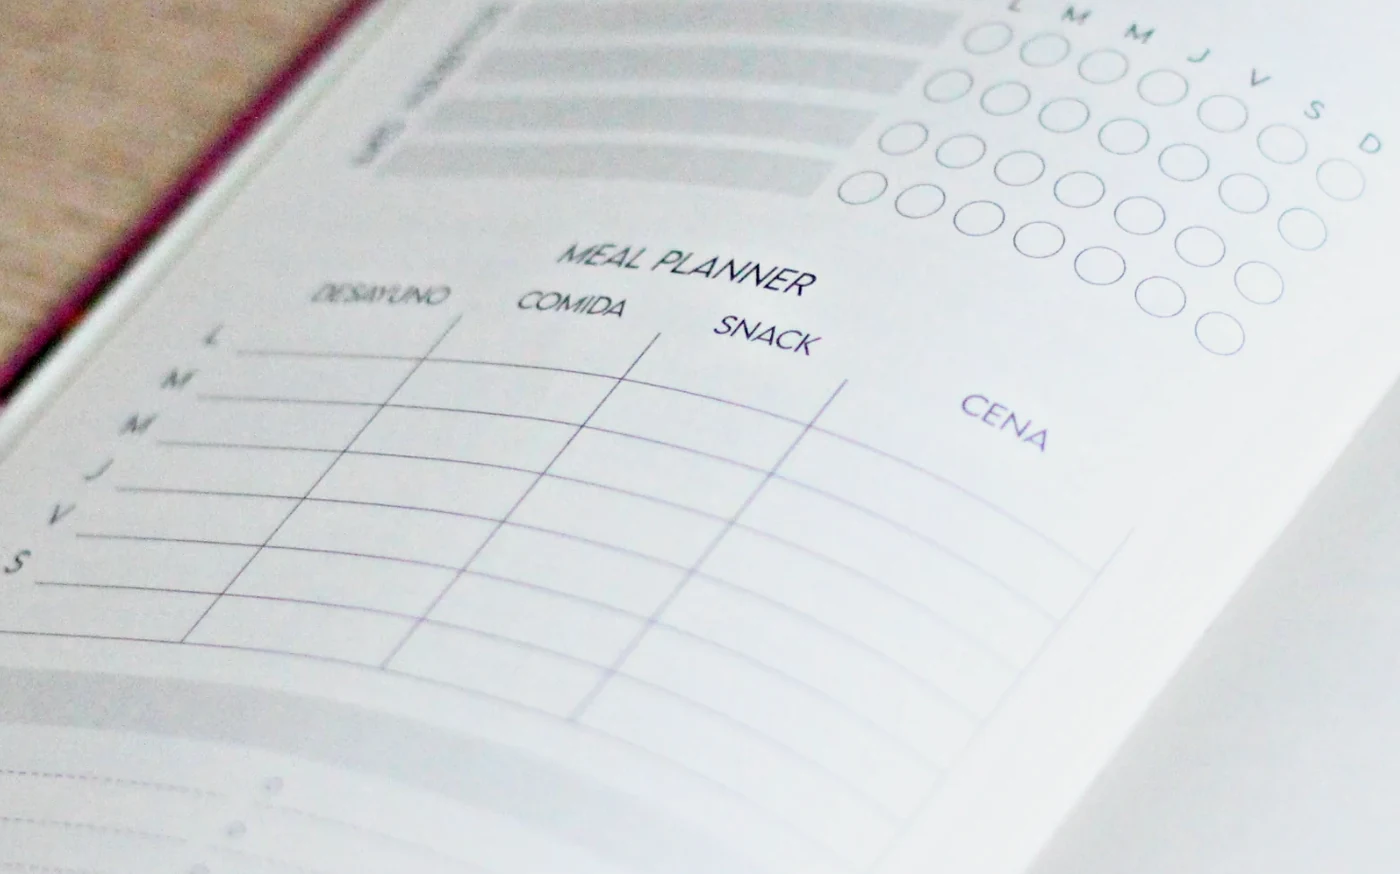 L M M J V S D
MEAL PLANNER
DESAYUNO COMIDA SNACK CENA
L
M
M
J
V
S